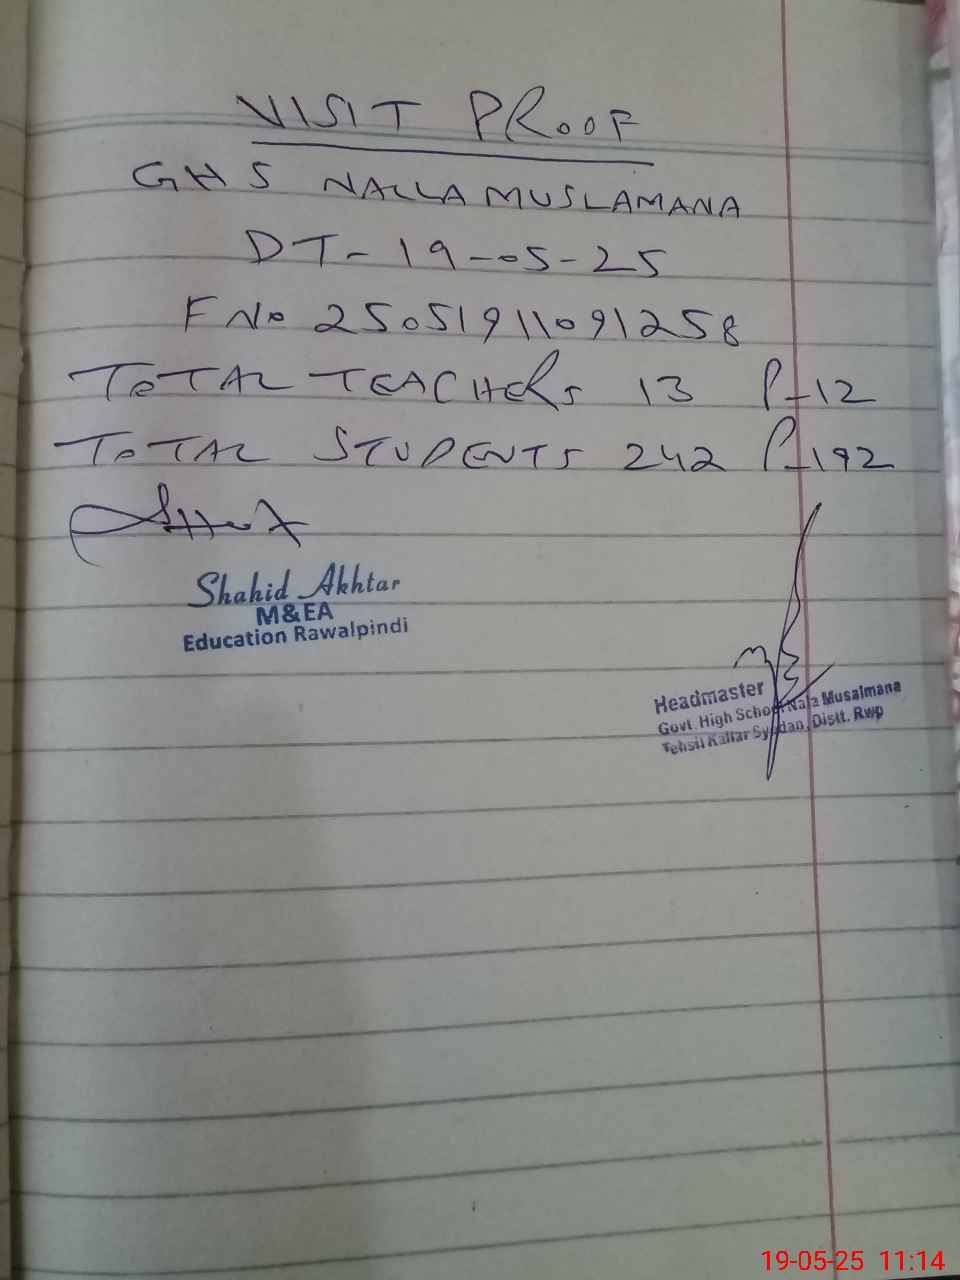 VISIT PROOF
GHS NALLA MUSLAMANA
DT- 19-05-25
F No 25051911091258
TOTAL TEACHERS 13 P-12
TOTAL STUDENTS 242 P-192
Shahid Akhtar
M&EA
Education Rawalpindi
Headmaster
Govt. High School Nala Musalmana
Tehsil Kallar Syedan, Distt. Rwp
19-05-25 11:14